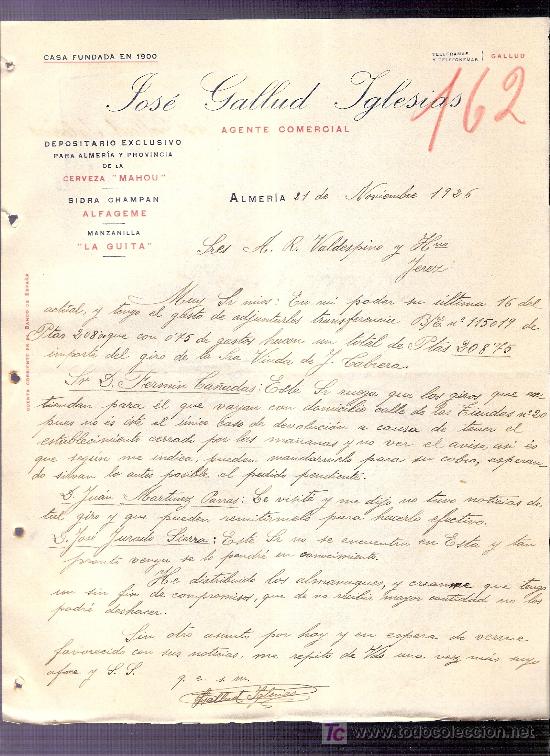 CASA FUNDADA EN 1900
TELEGRAMAS
Y TELEFONEMAS GALLUD
José Gallud Iglesias
162
AGENTE COMERCIAL
DEPOSITARIO EXCLUSIVO
PARA ALMERÍA Y PROVINCIA
DE LA
CERVEZA "MAHOU"
SIDRA CHAMPAN
ALFAGEME
MANZANILLA
"LA GUITA"
CUENTA CORRIENTE EN EL BANCO DE ESPAÑA
ALMERÍA 21 de Noviembre 1925
Sres A. R. Valdespino y Hno
Jerez
Muy Sr mios: En mi poder su ultima 16 del
actual, y tengo el gusto de adjuntarles transferencia B/E nº 115019 de
Ptas 208 que con 0'75 de gastos hacen un total de Ptas 208'75
importe del giro de la Sra Viuda de J. Cabrera.
Sr D. Fermin Cañadas: Este Sr ruega que los giros que
para él que vayan con domicilio calle de las Tiendas nº 20
pues no es este el unico caso de devolución a causa de tener el
establecimiento cerrado por las mañanas y no ver el aviso, asi es
que según me indica, pueden mandarselo para su cobro, esperan-
do sirvan lo antes posible el pedido pendiente.
D. Juan Martinez Parras: Le visité y me dijo no tuvo noticias de
tal giro y que pueden remitirmelo para hacerlo efectivo.
D. José Jurado Sierra: Este Sr no se encuentra en Esta y tan
pronto venga se lo pondré en conocimiento.
He distribuido los almanaques, y creanme que tengo
un sin fin de compromisos, que de no recibir mayor cantidad no los
podré deshacer.
Sin otro asunto por hoy y en espera de verme
favorecido con sus noticias, me repito de Vds una vez más suyo
afmo y S. S.
q. e. s. m.
Gallud Iglesias
todocoleccion.net